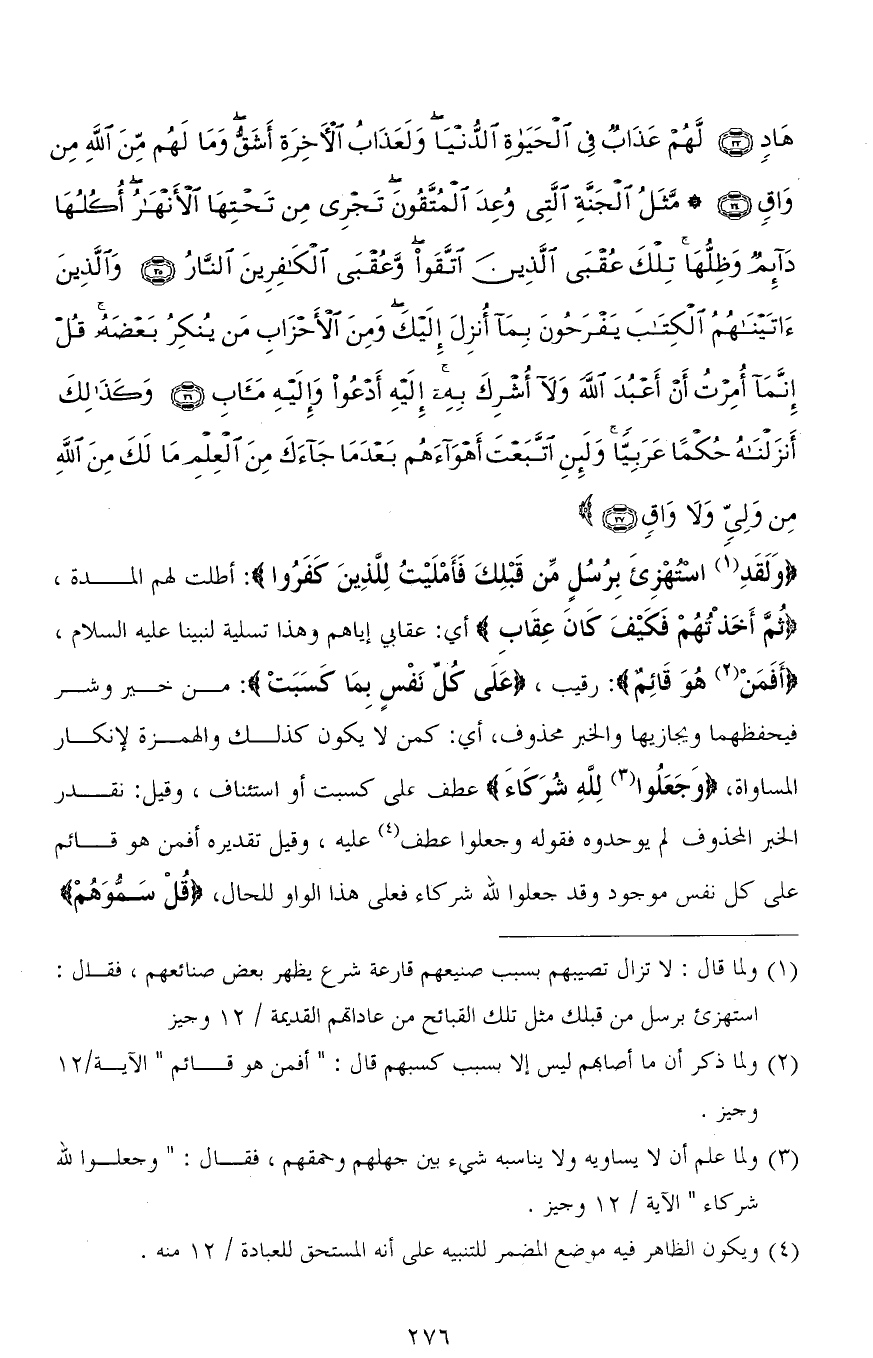 هَادٍ ٣٣ لَّهُمْ عَذَابٌ فِى ٱلْحَيَوٰةِ ٱلدُّنْيَا ۖ وَلَعَذَابُ ٱلْأَخِرَةِ أَشَقُّ ۖ وَمَا لَهُم مِّنَ ٱللَّهِ مِن
وَاقٍ ٣٤ * مَّثَلُ ٱلْجَنَّةِ ٱلَّتِى وُعِدَ ٱلْمُتَّقُونَ ۖ تَجْرِى مِن تَحْتِهَا ٱلْأَنْهَـٰرُ ۖ أُكُلُهَا
دَآئِمٌ وَظِلُّهَا ۚ تِلْكَ عُقْبَى ٱلَّذِينَ ٱتَّقَوا۟ ۖ وَّعُقْبَى ٱلْكَـٰفِرِينَ ٱلنَّارُ ٣٥ وَٱلَّذِينَ
ءَاتَيْنَـٰهُمُ ٱلْكِتَـٰبَ يَفْرَحُونَ بِمَآ أُنزِلَ إِلَيْكَ ۖ وَمِنَ ٱلْأَحْزَابِ مَن يُنكِرُ بَعْضَهُۥ ۚ قُلْ
إِنَّمَآ أُمِرْتُ أَنْ أَعْبُدَ ٱللَّهَ وَلَآ أُشْرِكَ بِهِۦٓ ۚ إِلَيْهِ أَدْعُوا۟ وَإِلَيْهِ مَـَٔابِ ٣٦ وَكَذَٰلِكَ
أَنزَلْنَـٰهُ حُكْمًا عَرَبِيًّا ۚ وَلَئِنِ ٱتَّبَعْتَ أَهْوَآءَهُم بَعْدَمَا جَآءَكَ مِنَ ٱلْعِلْمِ مَا لَكَ مِنَ ٱللَّهِ
مِن وَلِيٍّ وَلَا وَاقٍ ٣٧ ﴾
﴿وَلَقَدِ(١) اسْتُهْزِئَ بِرُسُلٍ مِّن قَبْلِكَ فَأَمْلَيْتُ لِلَّذِينَ كَفَرُوا ﴾: أطلت لهم المـــدة ،
﴿ثُمَّ أَخَذْتُهُمْ فَكَيْفَ كَانَ عِقَابِ ﴾ أي: عقابي إياهم وهذا تسلية لنبينا عليه السلام ،
﴿أَفَمَنْ(٢) هُوَ قَائِمٌ﴾: رقيب ، ﴿عَلَى كُلِّ نَفْسٍ بِمَا كَسَبَتْ ﴾: مـــن خـــير وشـــر
فيحفظهما ويجازيها والخبر محذوف، أي: كمن لا يكون كذلـــك والهمـــزة لإنكـــار
المساواة، ﴿وَجَعَلُوا(٣) لِلَّهِ شُرَكَاءَ ﴾ عطف على كسبت أو استئناف ، وقيل: نقـــدر
الخبر المحذوف لم يوحدوه فقوله وجعلوا عطف(٤) عليه ، وقيل تقديره أفمن هو قـــائم
على كل نفس موجود وقد جعلوا لله شركاء فعلى هذا الواو للحال، ﴿قُلْ سَمُّوَهُمْ﴾
(١) ولما قال : لا تزال تصيبهم بسبب صنيعهم قارعة شرع يظهر بعض صنائعهم ، فقـــال :
استهزئ برسل من قبلك مثل تلك القبائح من عاداتهم القديمة / ١٢ وجيز
(٢) ولما ذكر أن ما أصابهم ليس إلا بسبب كسبهم قال : " أفمن هو قـــائم " الآيـــة/١٢
وجيز .
(٣) ولما علم أن لا يساويه ولا يناسبه شيء بين جهلهم وحمقهم ، فقـــال : " وجعلـــوا لله
شركاء " الآية / ١٢ وجيز .
(٤) ويكون الظاهر فيه موضع المضمر للتنبيه على أنه المستحق للعبادة / ١٢ منه .
٢٧٦